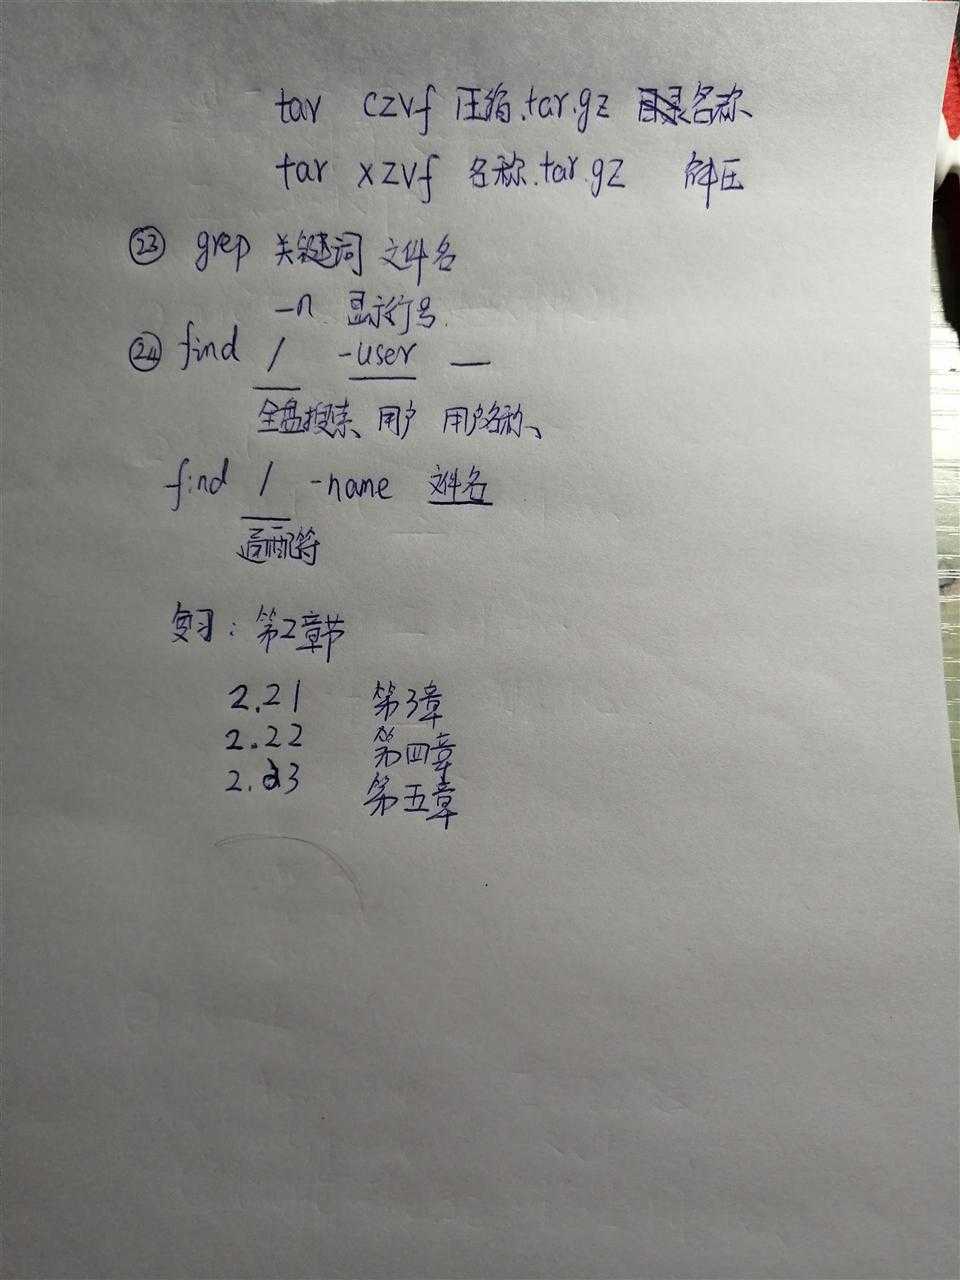 tar czvf 压缩.tar.gz 目录名称
tar xzvf 名称.tar.gz 解压
㉓ grep 关键词 文件名
-n 显示行号
㉔ find / -user —
全盘搜索、用户 用户名称、
find / -name 文件名
通配符
复习：第2章节
2.21 第3章
2.22 第四章
2.23 第五章